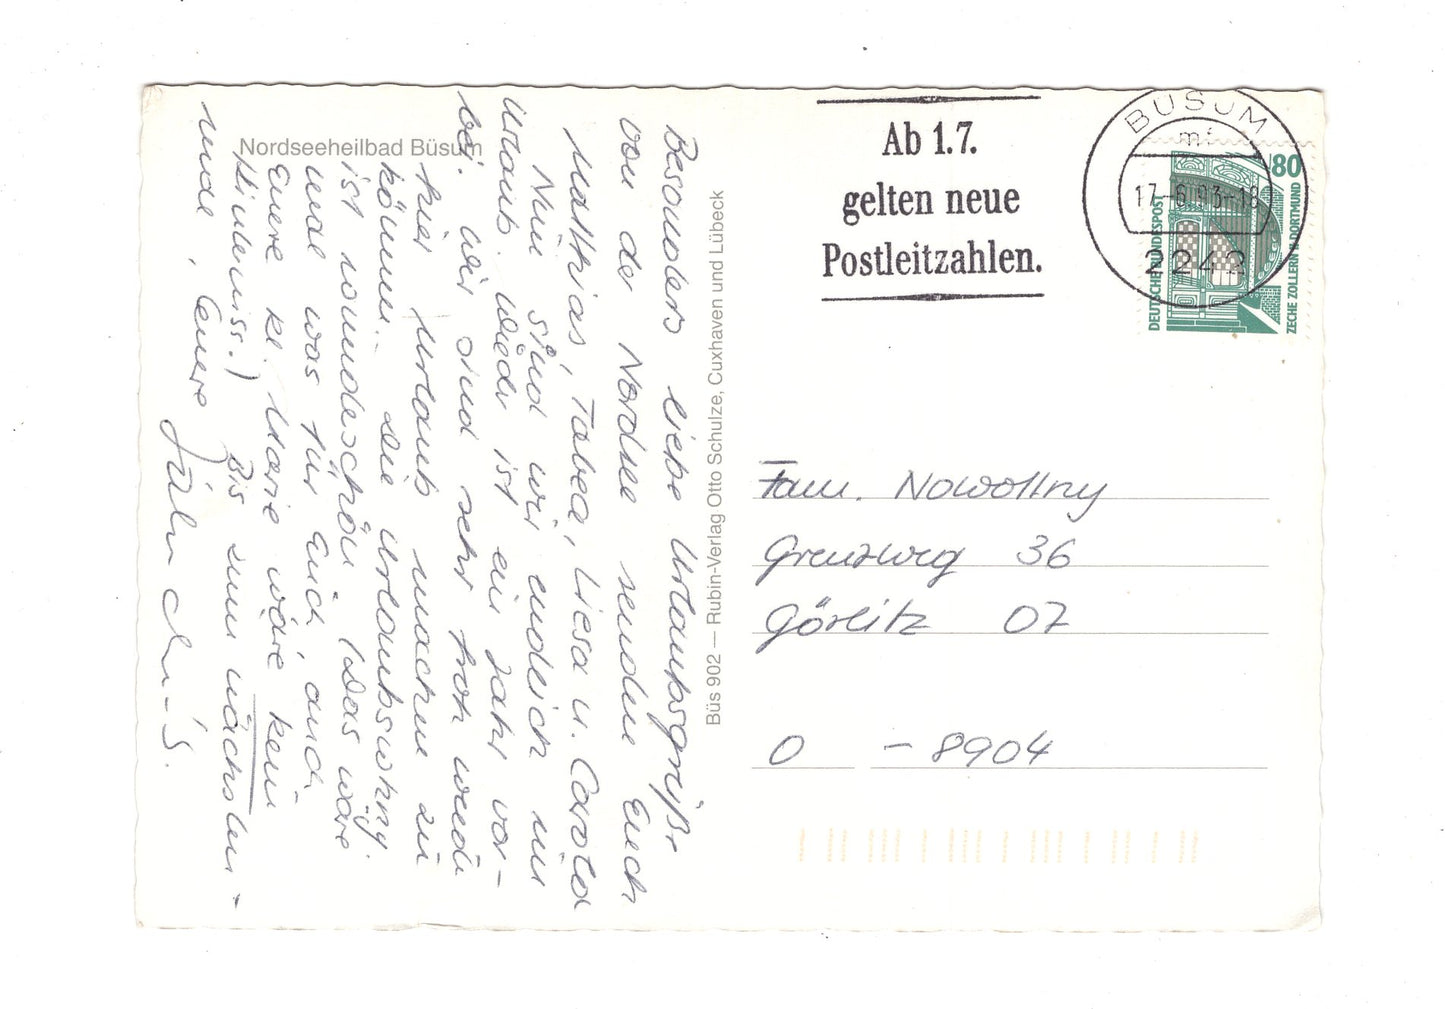 Nordseeheilbad Büsum
Besonders liebe Urlaubsgrüße
von der Nordsee senden Euch
Matthias, Tabea, Liesa u. Carola
Nun sind wir endlich im
Urlaub. Wieder ist ein Jahr vor-
bei. Wir sind sehr froh wieder
hier Urlaub machen zu
können. Die Urlaubswhng.
ist wunderschön. (Das wäre
mal was für Euch, auch
Euere kl. Marie wäre kein
Hinderniss.) Bis zum nächsten-
mal, Euere
Büs 902 — Rubin-Verlag Otto Schulze, Cuxhaven und Lübeck
Ab 1.7.
gelten neue
Postleitzahlen.
BÜSUM
17.-6.93-18
2242
80
DEUTSCHE BUNDESPOST
ZECHE ZOLLERN II DORTMUND
Fam. Nowottny
Grenzweg 36
Görlitz 07
O - 8904